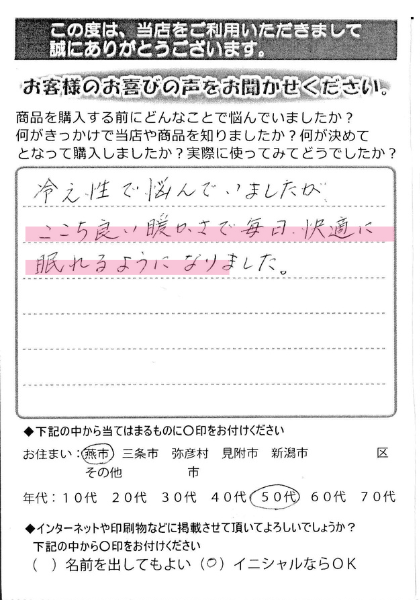 この度は、当店をご利用いただきまして
誠にありがとうございます。
お客様のお喜びの声をお聞かせください。
商品を購入する前にどんなことで悩んでいましたか?
何がきっかけで当店や商品を知りましたか?何が決めて
となって購入しましたか?実際に使ってみてどうでしたか?
冷え性で悩んでいましたが
ここち良い暖かさで毎日、快適に
眠れるようになりました。
◆下記の中から当てはまるものに〇印をお付けください
お住まい:燕市 三条市 弥彦村 見附市 新潟市 区
その他 市
年代:10代 20代 30代 40代 50代 60代 70代
◆インターネットや印刷物などに掲載させて頂いてよろしいでしょうか?
下記の中から〇印をお付けください
( )名前を出してもよい (○)イニシャルならOK